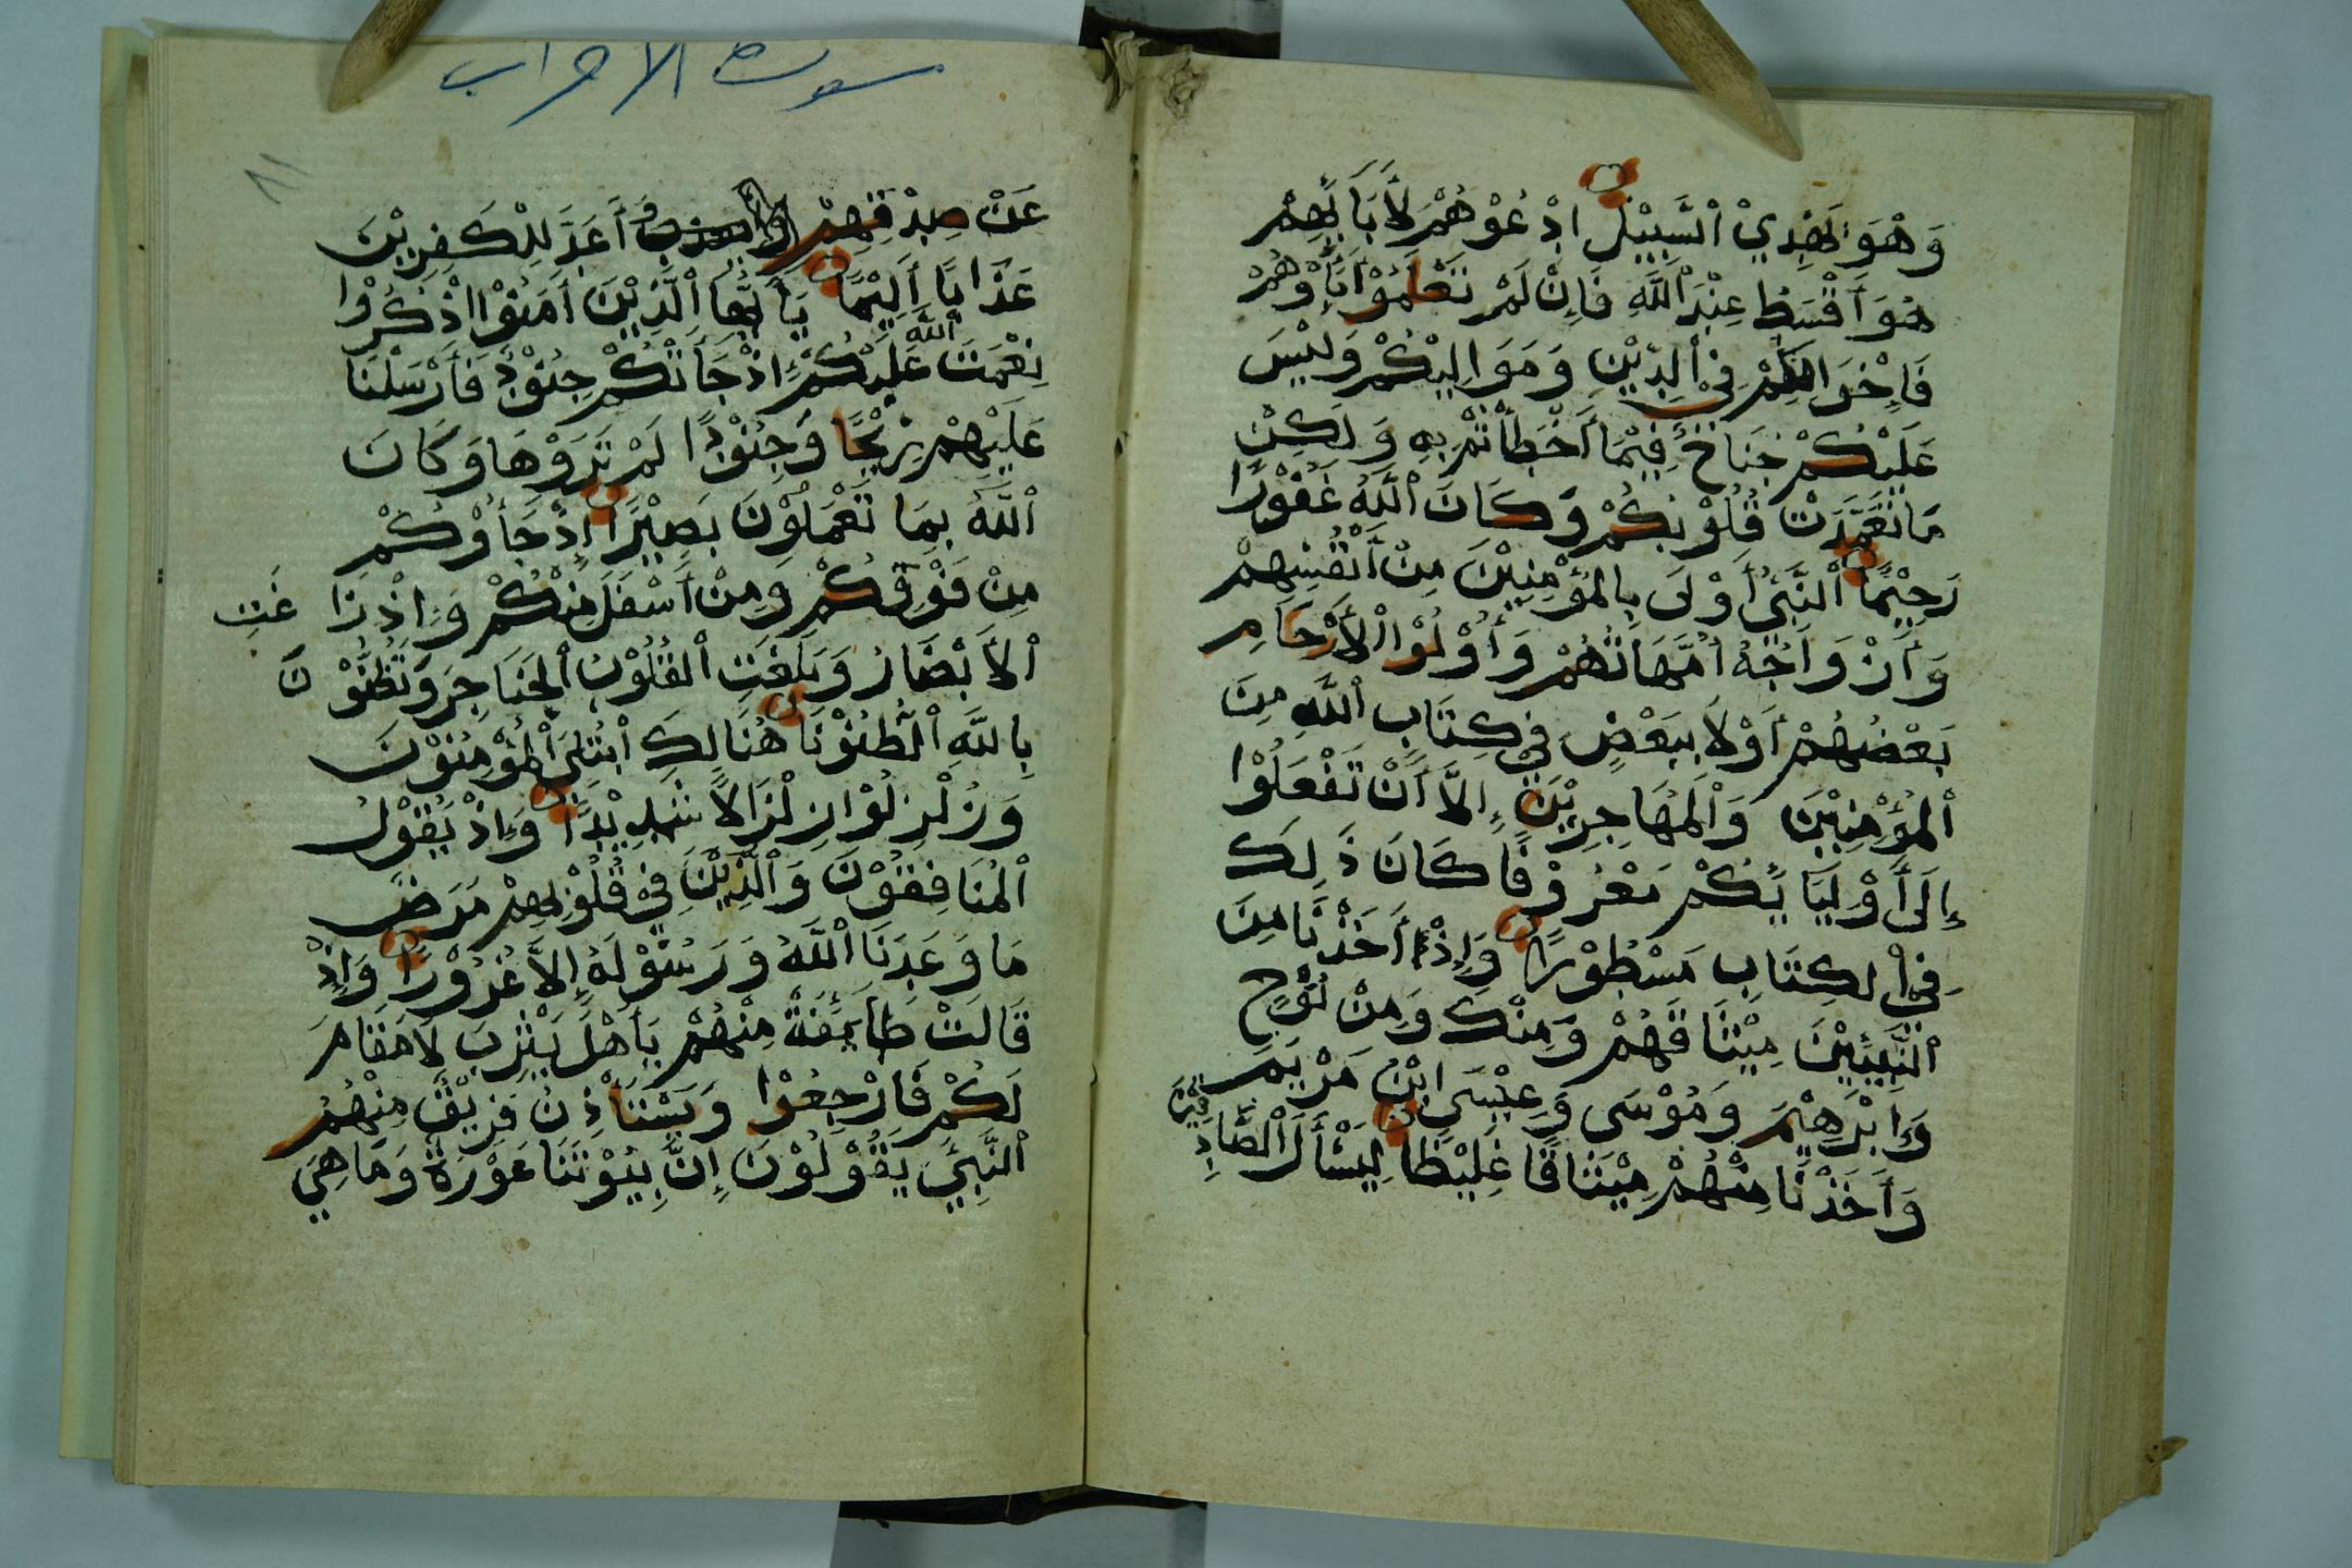 وَهُوَ يَهْدِيْ اْلسَّبِيْلَ اِدْعُوْهُمْ لِأَبَآئِهِمْ
هُوَ أَقْسَطُ عِنْدَ اْللَّهِ فَإِنْ لَمْ تَعْلَمُوْا أَبَآؤَهُمْ
فَإِخْوَانُكُمْ فِيْ اْلدِّيْنِ وَمَوَالِيْكُمْ وَلَيْسَ
عَلَيْكُمْ جُنَاحٌ فِيْمَا أَخْطَأْتُمْ بِهِ وَلَكِنْ
مَا تَعَمَّدَتْ قُلُوْبُكُمْ وَكَانَ اْللَّهُ غَفُوْرًا
رَحِيْمًا اْلنَّبِيُّ أَوْلَى بِالْمُؤْمِنِيْنَ مِنْ أَنْفُسِهِمْ
وَأَزْوَاجُهُ أُمَّهَاتُهُمْ وَأُوْلُوْا اْلأَرْحَامِ
بَعْضُهُمْ أَوْلَا بِبَعْضٍ فِيْ كِتَابِ اْللَّهِ مِنَ
اْلمُؤْمِنِيْنَ وَاْلمُهَاجِرِيْنَ إِلاَّ أَنْ تَفْعَلُوْا
إِلَى أَوْلِيَآئِكُمْ مَعْرُوْفًا كَانَ ذَلِكَ
فِيْ الكِتَابِ مَسْطُوْرًا وَإِذْ أَخَذْنَا مِنَ
اْلنَّبِيِّيْنَ مِيْثَاقَهُمْ وَمِنْكَ وَمِنْ نُوْحٍ
وَإِبْرَهِيْمَ وَمُوْسَى وَعِيْسَى ابْنِ مَرْيَمَ
وَأَخَذْنَا مِنْهُمْ مِيْثَاقًا غَلِيْظًا لِيَسْأَلَ اْلصَّادِقِيْنَ
سورة الاحزاب
٨١
عَنْ صِدْقِهِمْ وَأَعَدَّ لِلْكَفِرِيْنَ
عَذَابًا أَلِيْمًا يَأَيُّهَا اْلَّذِيْنَ أَمَنُوْا اْذْكُرُوْا
نِعْمَتَ اْللَّهِ عَلَيْكُمْ إِذْجَاتْكُمْ جُنُوْدٌ فَأَرْسَلْنَا
عَلَيْهِمْ رِيْحًا وَجُنُوْدًا لَمْ تَرَوْهَا وَكَانَ
اْللَّهُ بِمَا تَعْمَلُوْنَ بَصِيْرًا إِذْجَاؤُوْكُمْ
مِنْ فَوْقِكُمْ وَمِنْ أَسْفَلَ مِنْكُمْ وَإِذْ زَاغَتِ
اْلأَبْصَارُ وَبَلَغَتِ اْلقُلُوْبُ اْلحَنَاجِرَ وَتَظُنُّوْنَ
بِاللَّهِ اْلظُّنُوْنَا هُنَالِكَ اْبْتُلِيَ اْلمُؤْمِنُوْنَ
وَزُلْزِلُوْا زِلْزَالاً شَدِيْدًا وَإِذْ يَقُوْلُ
اْلمُنَافِقُوْنَ وَاْلَّذِيْنَ فِيْ قُلُوْبِهِمْ مَرَضٌ
مَا وَعَدَنَا اْللَّهُ وَرَسُوْلُهُ إِلاَّ غُرُوْرًا وَإِذْ
قَالَتْ طَآئِفَةٌ مِنْهُمْ يَأَهْلَ يَثْرِبَ لَا مَقَامَ
لَكُمْ فَارْجِعُوْا وَيَسْتَأْذِنُ فَرِيْقٌ مِنْهُمُ
اْلنَّبِيَّ يَقُوْلُوْنَ إِنَّ بِيُوْتَنَا عَوْرَةٌ وَمَا هِيَ